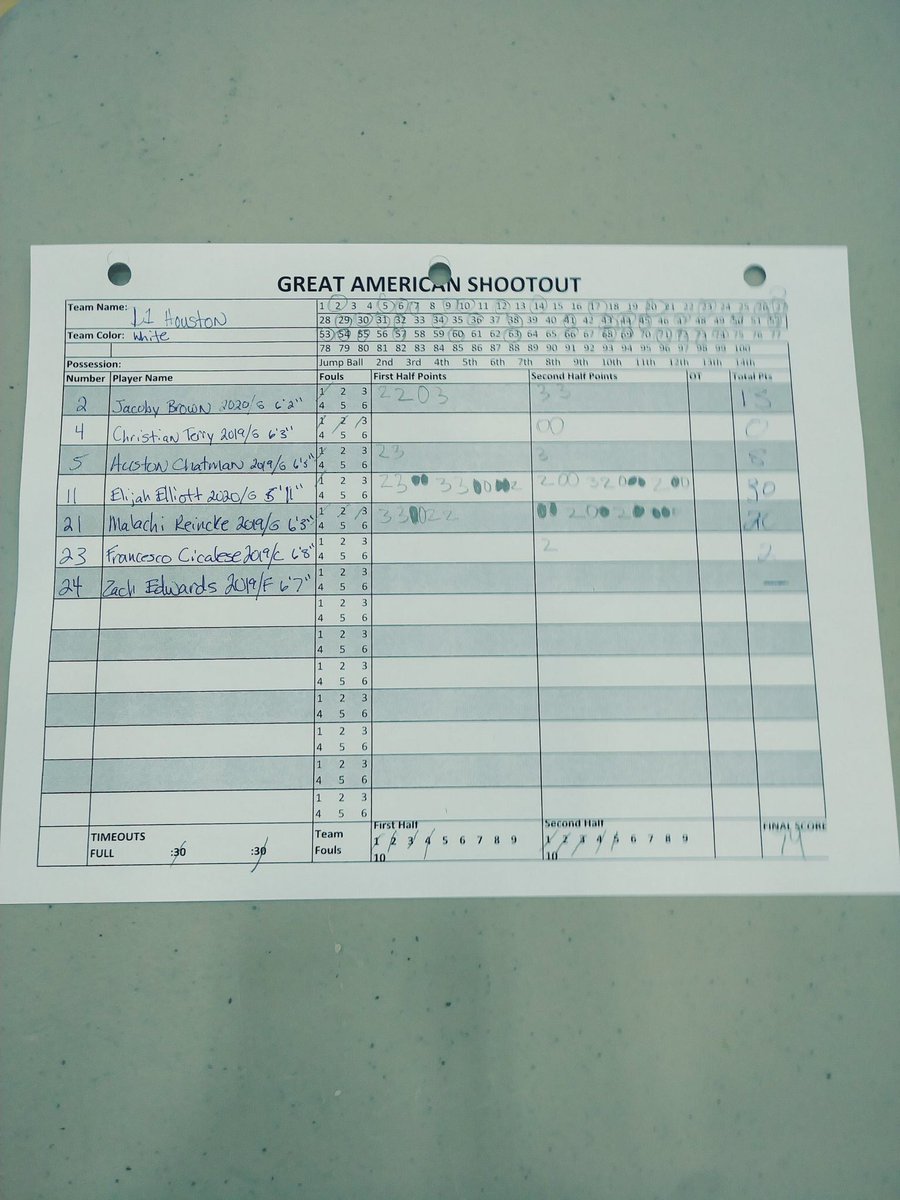 GREAT AMERICAN SHOOTOUT
Team Name: L1 Houston 1 2 3 4 5 6 7 8 9 10 11 12 13 14 15 16 17 18 19 20 21 22 23 24 25 26 27
28 29 30 31 32 33 34 35 36 37 38 39 40 41 42 43 44 45 46 47 48 49 50 51 52
Team Color: White 53 54 55 56 57 58 59 60 61 62 63 64 65 66 67 68 69 70 71 72 73 74 75 76 77
78 79 80 81 82 83 84 85 86 87 88 89 90 91 92 93 94 95 96 97 98 99 100
Possession: Jump Ball 2nd 3rd 4th 5th 6th 7th 8th 9th 10th 11th 12th 13th 14th
Number Player Name Fouls First Half Points Second Half Points OT Total Pts
2 Jacoby Brown 2020/G 6'2" 1 2 3 2203 33 13
4 5 6
4 Christian Terry 2019/G 6'3" 1 2 3 00 0
4 5 6
5 Auston Chatman 2019/G 6'5" 1 2 3 23 3 8
4 5 6
11 Elijah Elliott 2020/G 5'11" 1 2 3 30
4 5 6
21 Malachi Reincke 2019/G 6'3" 1 2 3
4 5 6
23 Francesco Cicalese 2019/C 6'8" 1 2 3 2 2
4 5 6
24 Zach Edwards 2019/F 6'7" 1 2 3 —
4 5 6
1 2 3
4 5 6
1 2 3
4 5 6
1 2 3
4 5 6
1 2 3
4 5 6
1 2 3
4 5 6
1 2 3
4 5 6
1 2 3
4 5 6
TIMEOUTS Team First Half Second Half FINAL SCORE
FULL :30 :30 Fouls 1 2 3 4 5 6 7 8 9 1 2 3 4 5 6 7 8 9
10 10